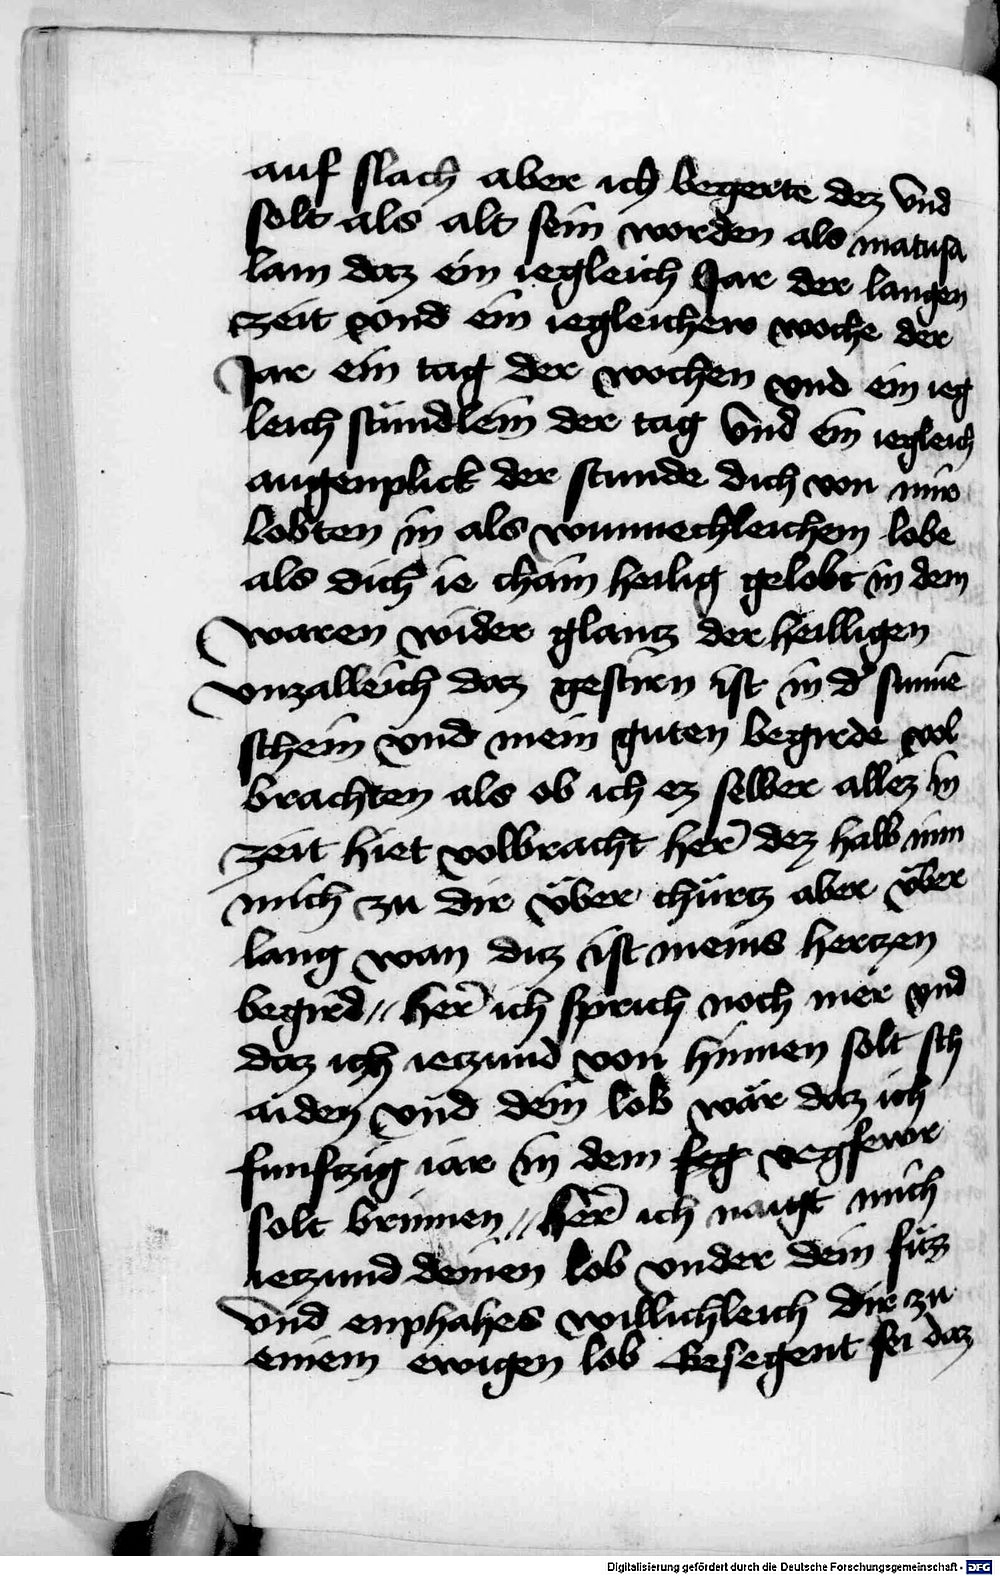 auf slach aber ich begerte dez vnd
solt als alt sein worden als matusa
lam daz ein iegleich Jar der langen
zeit vnd ein iegleichew woche der
Jar ein tag der wochen vnd ein ieg
leich stündlein der tag vnd ein iegleich
augenplick der stunde dich von mir
lobten in als wunnechleichem lobe
als dich ie chain heilig gelobt in dem
waren wider glantz der heilligen
vnzalleich daz gestirn ist in d' sunnē
schein vnd mein guten begirde vol
brachten als ob ich ez selber allez in
zeit hiet volbracht her̄ dez halb nim
mich zu dir über chürtz aber über
lang wan ditz ist meins hertzen
begird // her̄ ich sprich noch mer vnd
daz ich ietzund von hinnen solt sch
aiden vnd dein lob wär daz ich
funftzig iar in dem feg vegfewr
solt brinnen // her̄ ich naigt mich
ietzund deinen lob vnder dein füz
vnd enphahes willichleich dir zu
einem ewigen lob Gesegent sei daz
Digitalisierung gefördert durch die Deutsche Forschungsgemeinschaft - DFG